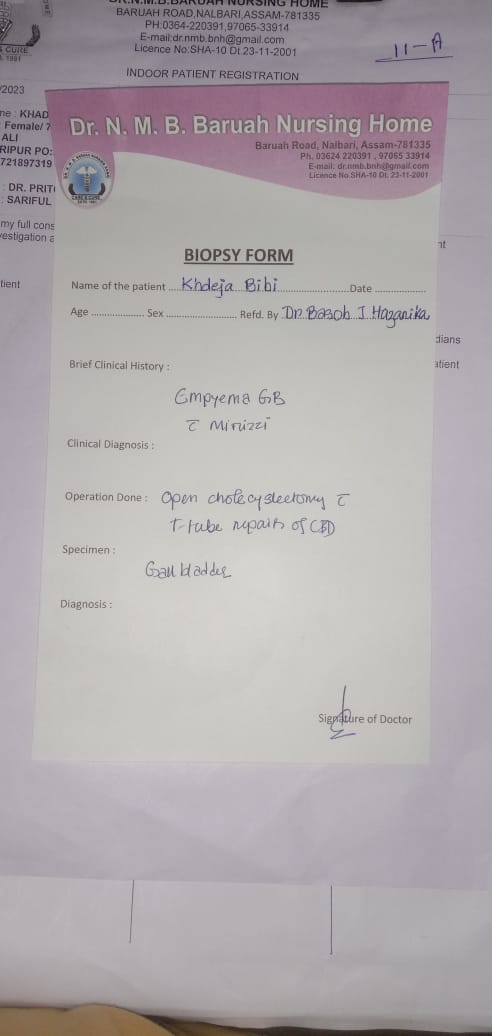 DR.N.M.B.BARUAH NURSING HOME
BARUAH ROAD,NALBARI,ASSAM-781335
PH:0364-220391,97065-33914
E-mail:dr.nmb.bnh@gmail.com
Licence No:SHA-10 Dt.23-11-2001
CURE
1991
11-A
INDOOR PATIENT REGISTRATION
/2023
me : KHAD
Female/ 7
ALI
RIPUR PO:
721897319
: DR. PRIT
: SARIFUL
my full cons
vestigation a
tient
nt
dians
atient
Dr. N. M. B. Baruah Nursing Home
Baruah Road, Nalbari, Assam-781335
Ph. 03624 220391 , 97065 33914
E-mail: dr.nmb.bnh@gmail.com
Licence No.SHA-10 Dt. 23-11-2001
CARE & CURE
BIOPSY FORM
Name of the patient ....Khdeja Bibi....................Date ................
Age ................. Sex ....................... Refd. By .Dr. Basob J Hazarika
Brief Clinical History :
Empyema GB
c̄ Mirizzi
Clinical Diagnosis :
Operation Done : Open cholecystectomy c̄
T-tube repair of CBD
Specimen :
Gall bladder
Diagnosis :
Signature of Doctor